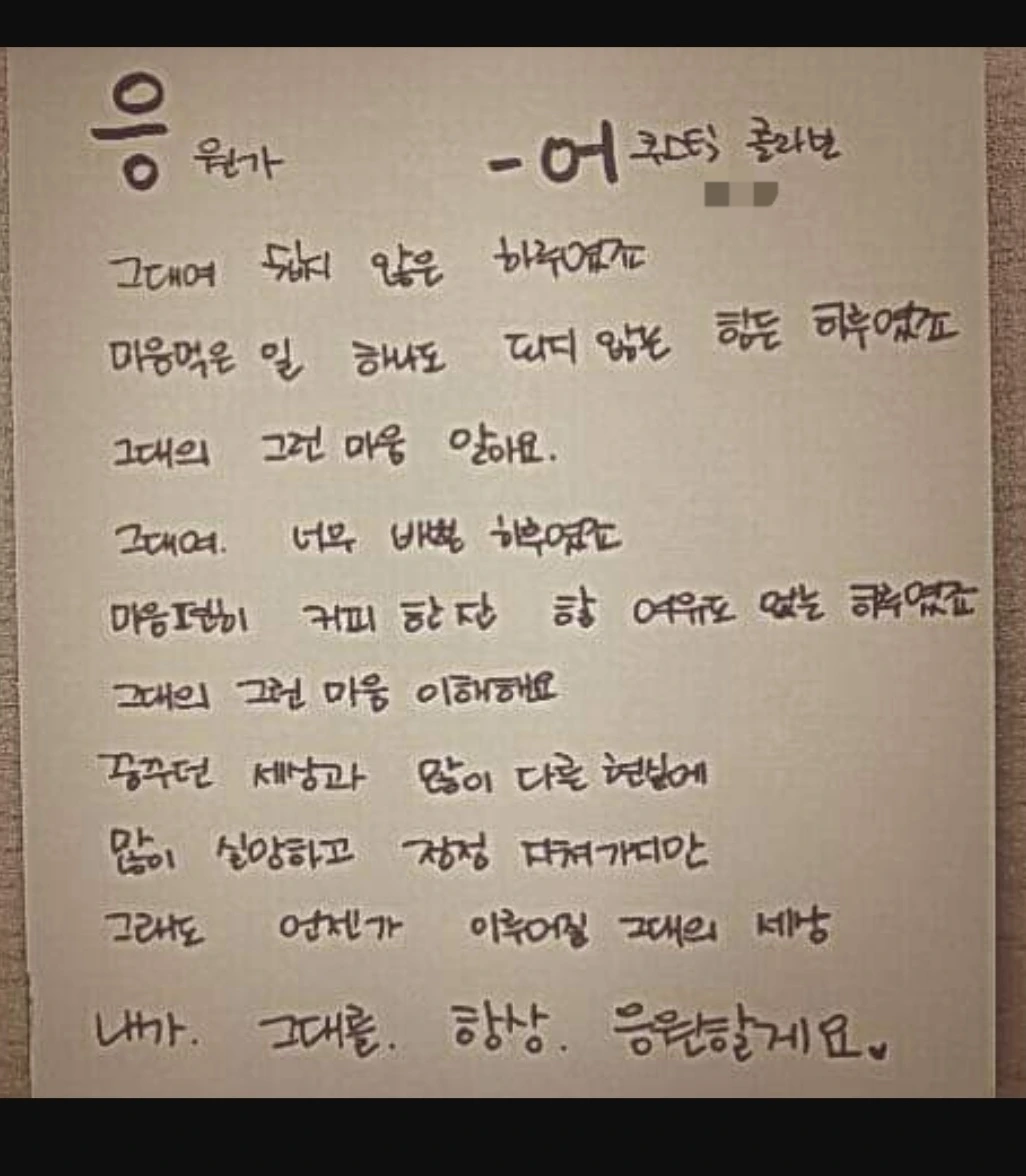 응원가 - 어쿠스틱 콜라보
그대여 쉽지 않은 하루였죠
마음먹은 일 하나도 되지 않는 힘든 하루였죠
그대의 그런 마음 알아요.
그대여. 너무 바쁜 하루였죠
마음편히 커피 한 잔 할 여유도 없는 하루였죠
그대의 그런 마음 이해해요
꿈꾸던 세상과 많이 다른 현실에
많이 실망하고 점점 지쳐가지만
그래도 언젠가 이루어질 그대의 세상
내가. 그대를. 항상. 응원할게요.